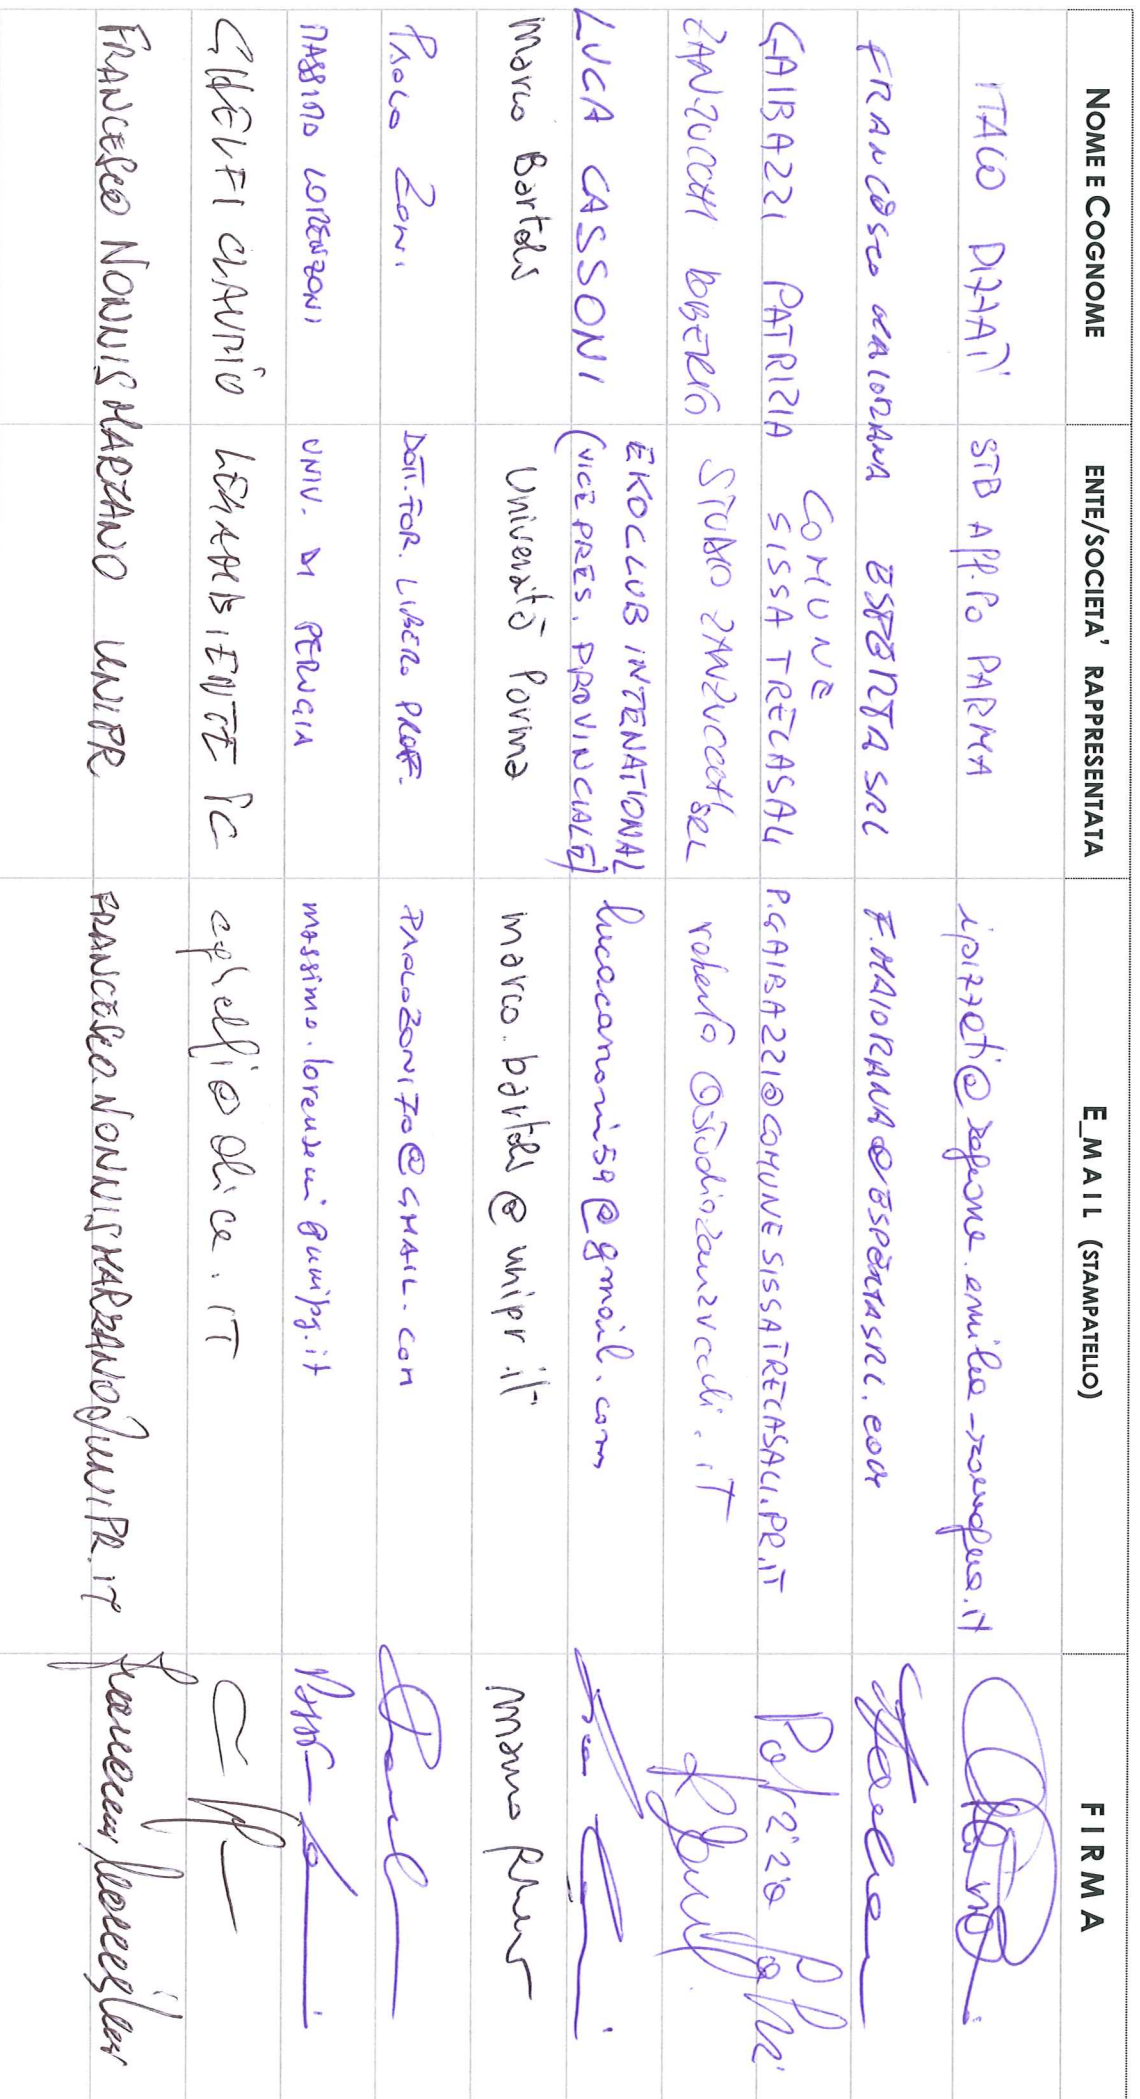 NOME E COGNOME ENTE/SOCIETA' RAPPRESENTATA E_MAIL (STAMPATELLO) FIRMA
ITALO STB AFF.PO PARMA
FRANCESCO MAIORANA ESPERTA SRL F.MAIORANA@ESPERTASRL.COM
GAIBAZZI PATRIZIA COMUNE SISSA TRECASALI P.GAIBAZZI@COMUNESISSATRECASALI.PR.IT Patrizia
ZANZUCCHI ROBERTO STUDIO ZANZUCCHI SRL roberto@studiozanzucchi.iT
LUCA CASSONI EKOCLUB INTENATIONAL (VICE PRES. PROVINCIALE) lucacassoni59@gmail.com
Marco Bartoli Università Parma marco.bartoli@unipr.it
PAOLO ZONI DOTT.FOR. LIBERO PROF. PAOLOZONI70@GMAIL.COM
MASSIMO LORENZONI UNIV. DI PERUGIA massimo.lorenzoni@unipg.it
GHELFI CLAUDIO LEGAMBIENTE PC cghelfi@alice.IT
FRANCESCO NONNIS MARZANO UNIPR FRANCESCO.NONNISMARZANO@UNIPR.IT